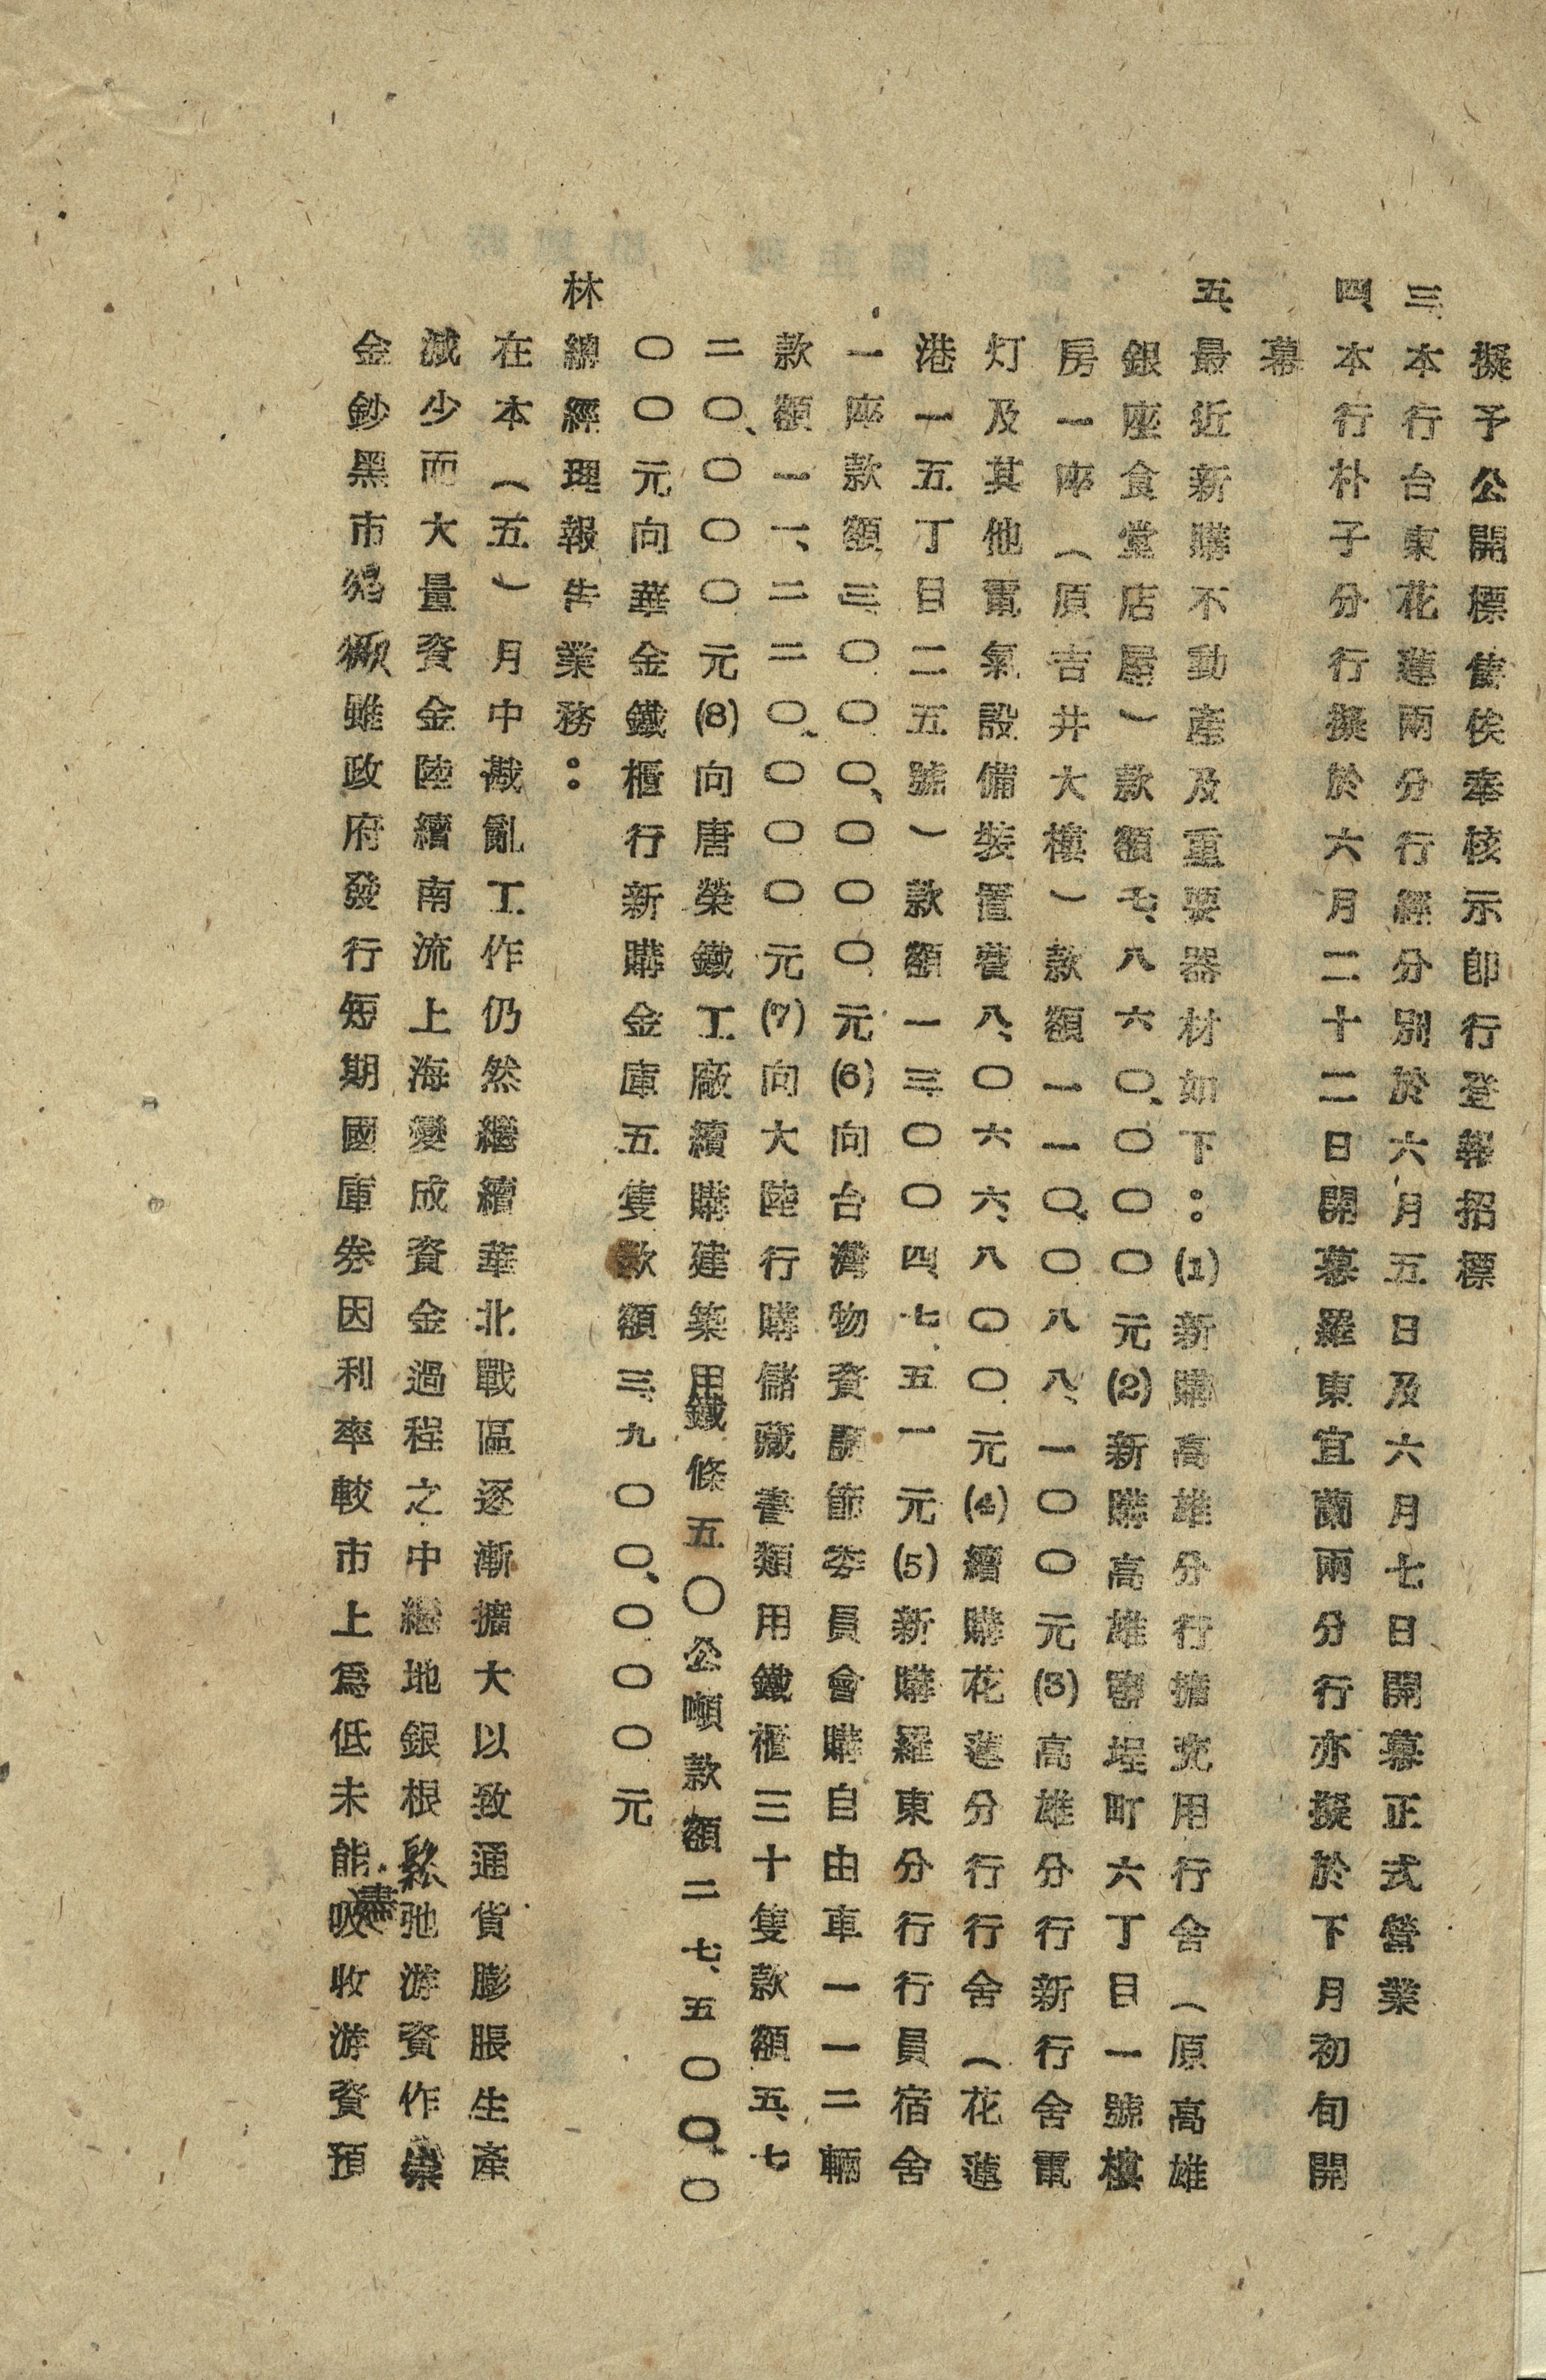 擬予公開標售俟奉核示卽行登報招標
三、本行台東花蓮兩分行經分別於六月五日及六月七日開幕正式營業
四、本行朴子分行擬於六月二十二日開幕羅東宜蘭兩分行亦擬於下月初旬開
幕
五、最近新購不動產及重要器材如下：(1)新購高雄分行擴充用行舍（原高雄
銀座食堂店屋）款額七、八六〇、〇〇〇元(2)新購高雄鹽埕町六丁目一號樓
房一座（原吉井大樓）款額一一〇、〇八八、一〇〇元(3)高雄分行新行舍電
灯及其他電氣設備裝置費八、〇六六、八〇〇元(4)續購花蓮分行行舍（花蓮
港一五丁目二五號）款額一三〇〇四、七五一元(5)新購羅東分行行員宿舍
一座款額三、〇〇〇、〇〇〇元(6)向台灣物資調節委員會購自由車一一二輛
款額一一、二二〇、〇〇〇元(7)向大陸行購儲藏書類用鐵櫃三十隻款額五、七
二〇、〇〇〇元(8)向唐榮鐵工廠續購建築用鐵條五〇公噸款額二七、五〇〇、〇
〇〇元向華金鐵櫃行新購金庫五隻款額三、九〇〇、〇〇〇元
林總經理報告業務：
在本（五）月中戡亂工作仍然繼續華北戰區逐漸擴大以致通貨膨脹生產
減少而大量資金陸續南流上海變成資金過程之中繼地銀根鬆弛游資作祟
金鈔黑市猖獗雖政府發行短期國庫券因利率較市上爲低未能盡吸收游資預